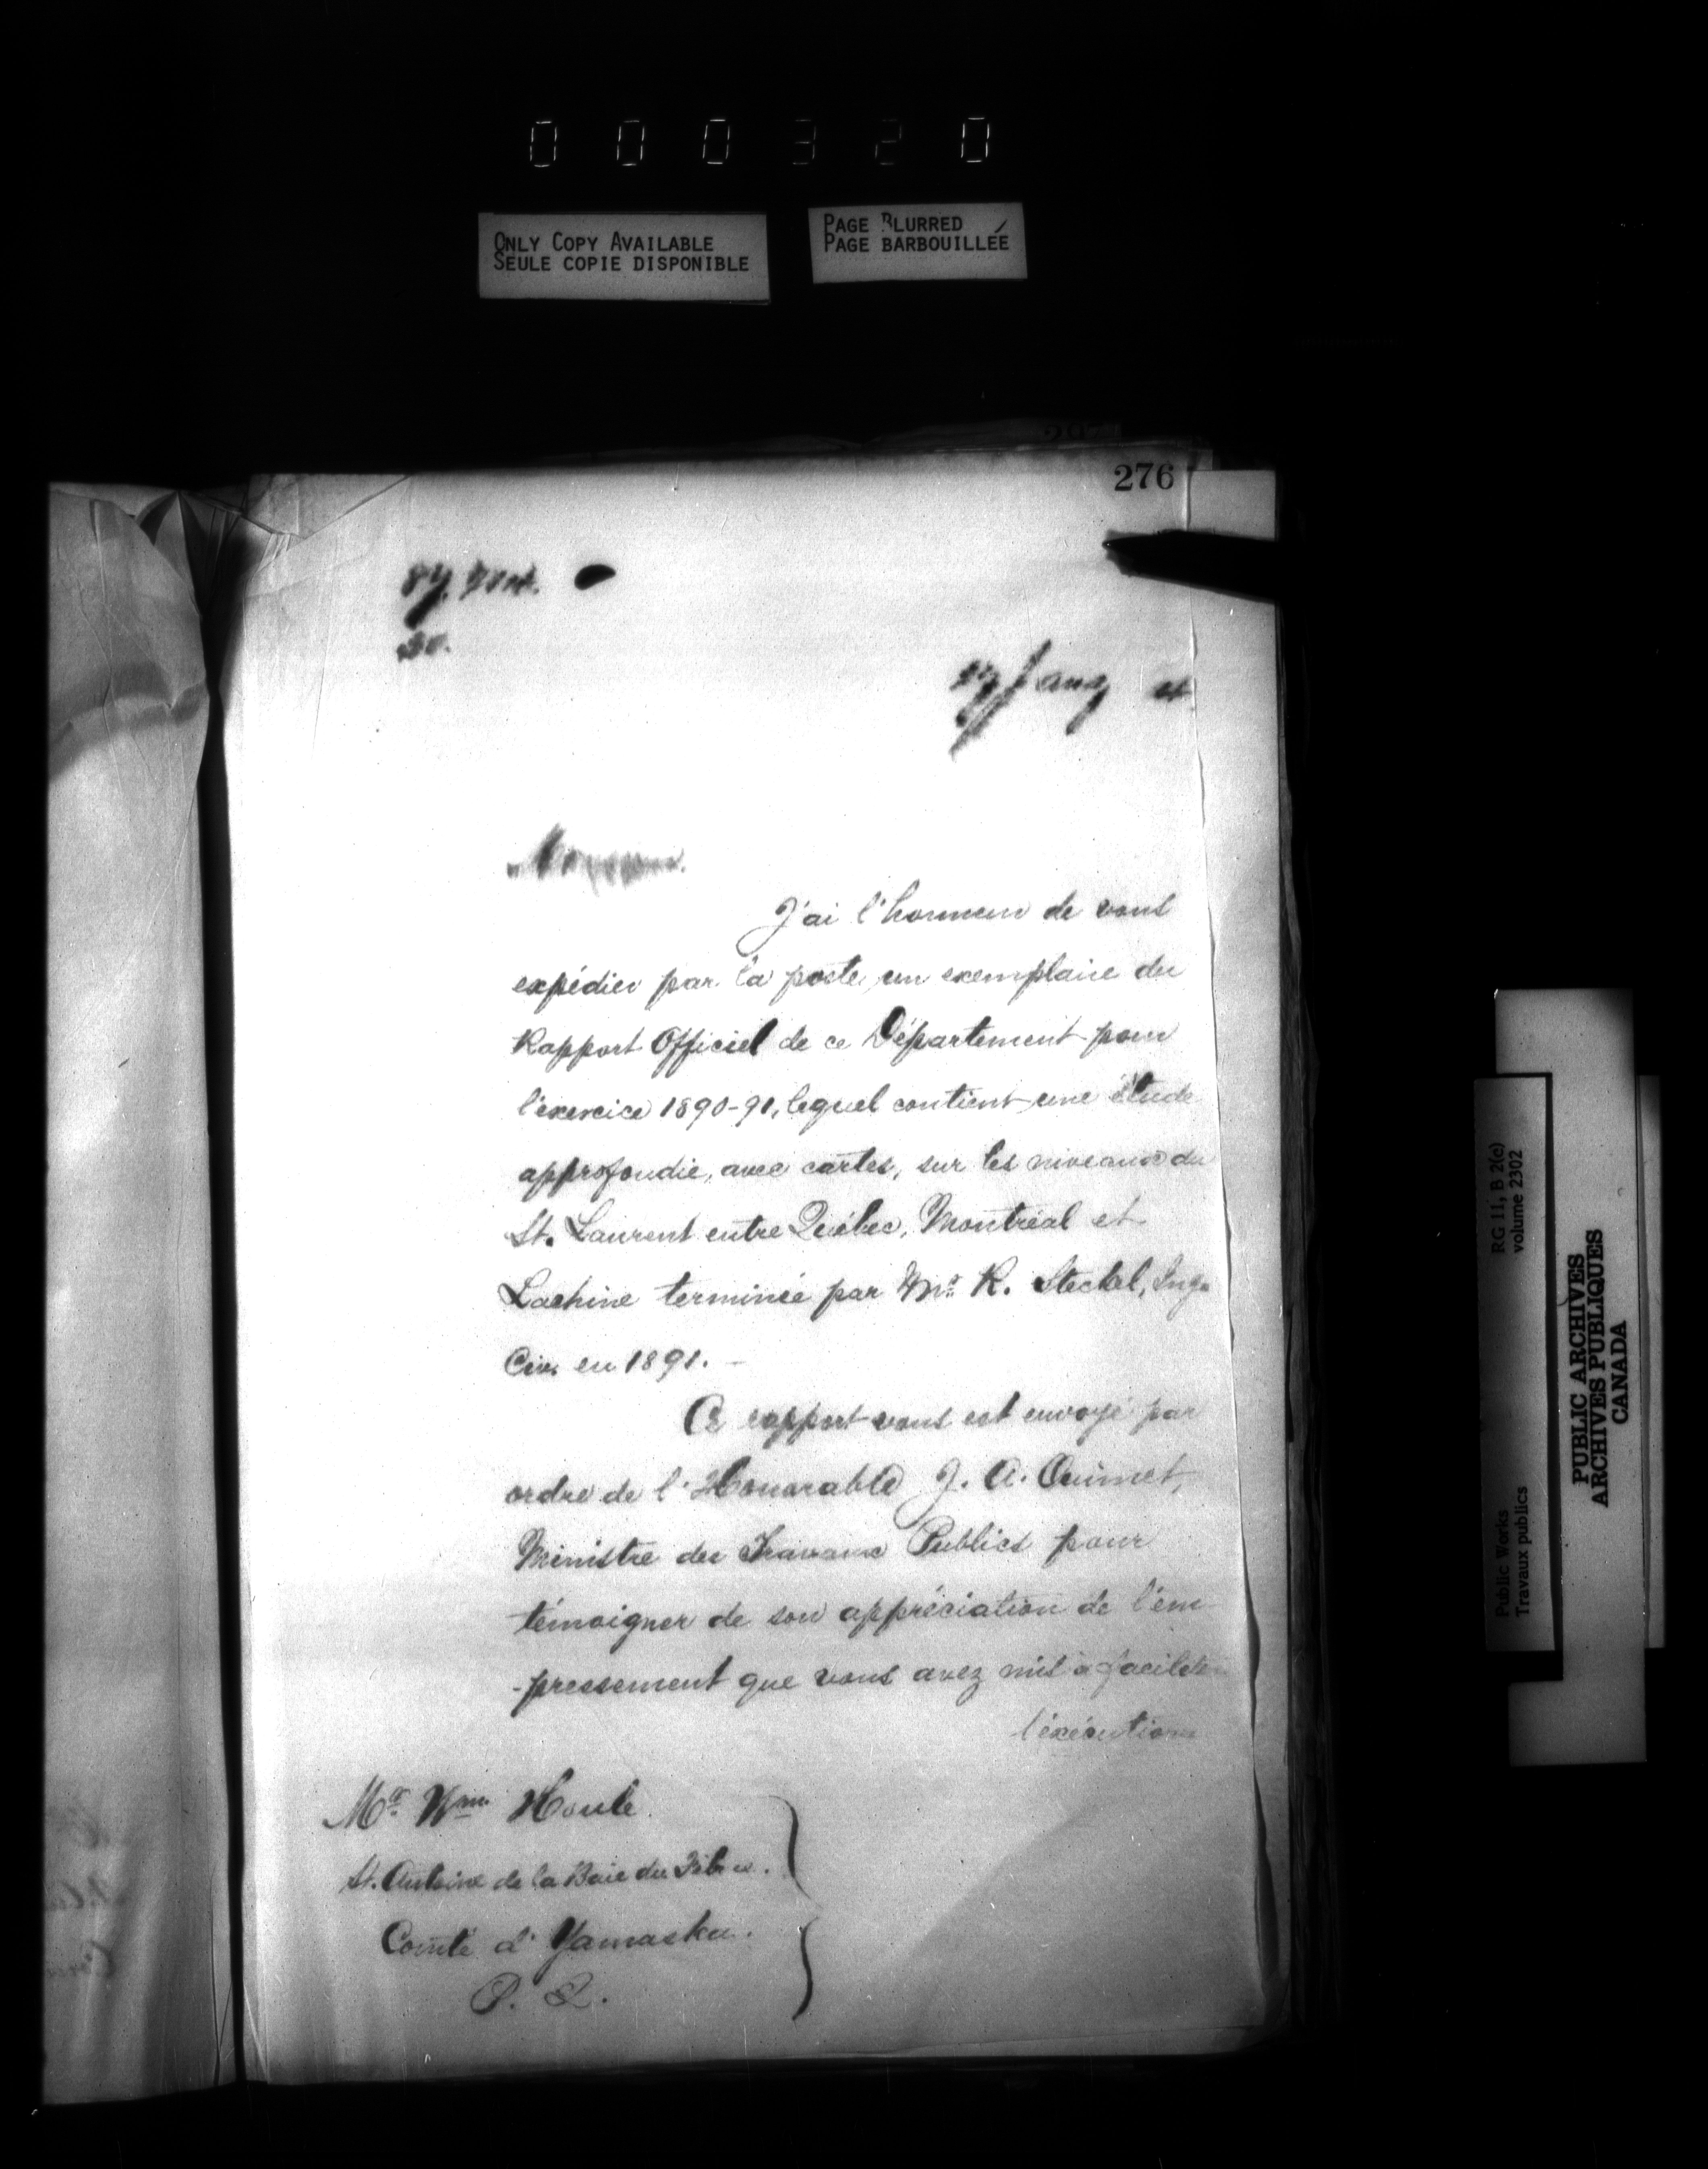 0 0 0 3 2 0
ONLY COPY AVAILABLE
SEULE COPIE DISPONIBLE
PAGE BLURRED
PAGE BARBOUILLÉE
276
Monsieur.
J'ai l'honneur de vous
expédier par la poste, un exemplaire du
Rapport Officiel de ce Département pour
l'exercice 1890-91, lequel contient une étude
approfondie, avec cartes, sur les niveaux du
St. Laurent entre Québec, Montréal et
Lachine terminée par Mr. R. Steckel, Ing.
Civ. en 1891. -
Ce rapport vous est envoyé par
ordre de l'Honorable J. A. Ouimet,
Ministre des Travaux Publics pour
témoigner de son appréciation de l'em
-pressement que vous avez mis à faciliter
l'exécution
Mr. Wm. Houle
St. Antoine de la Baie du Febvre.
Comté d'Yamaska.
P. Q.
RG 11, B 2(c)
volume 2302
Public Works
Travaux publics
PUBLIC ARCHIVES
ARCHIVES PUBLIQUES
CANADA